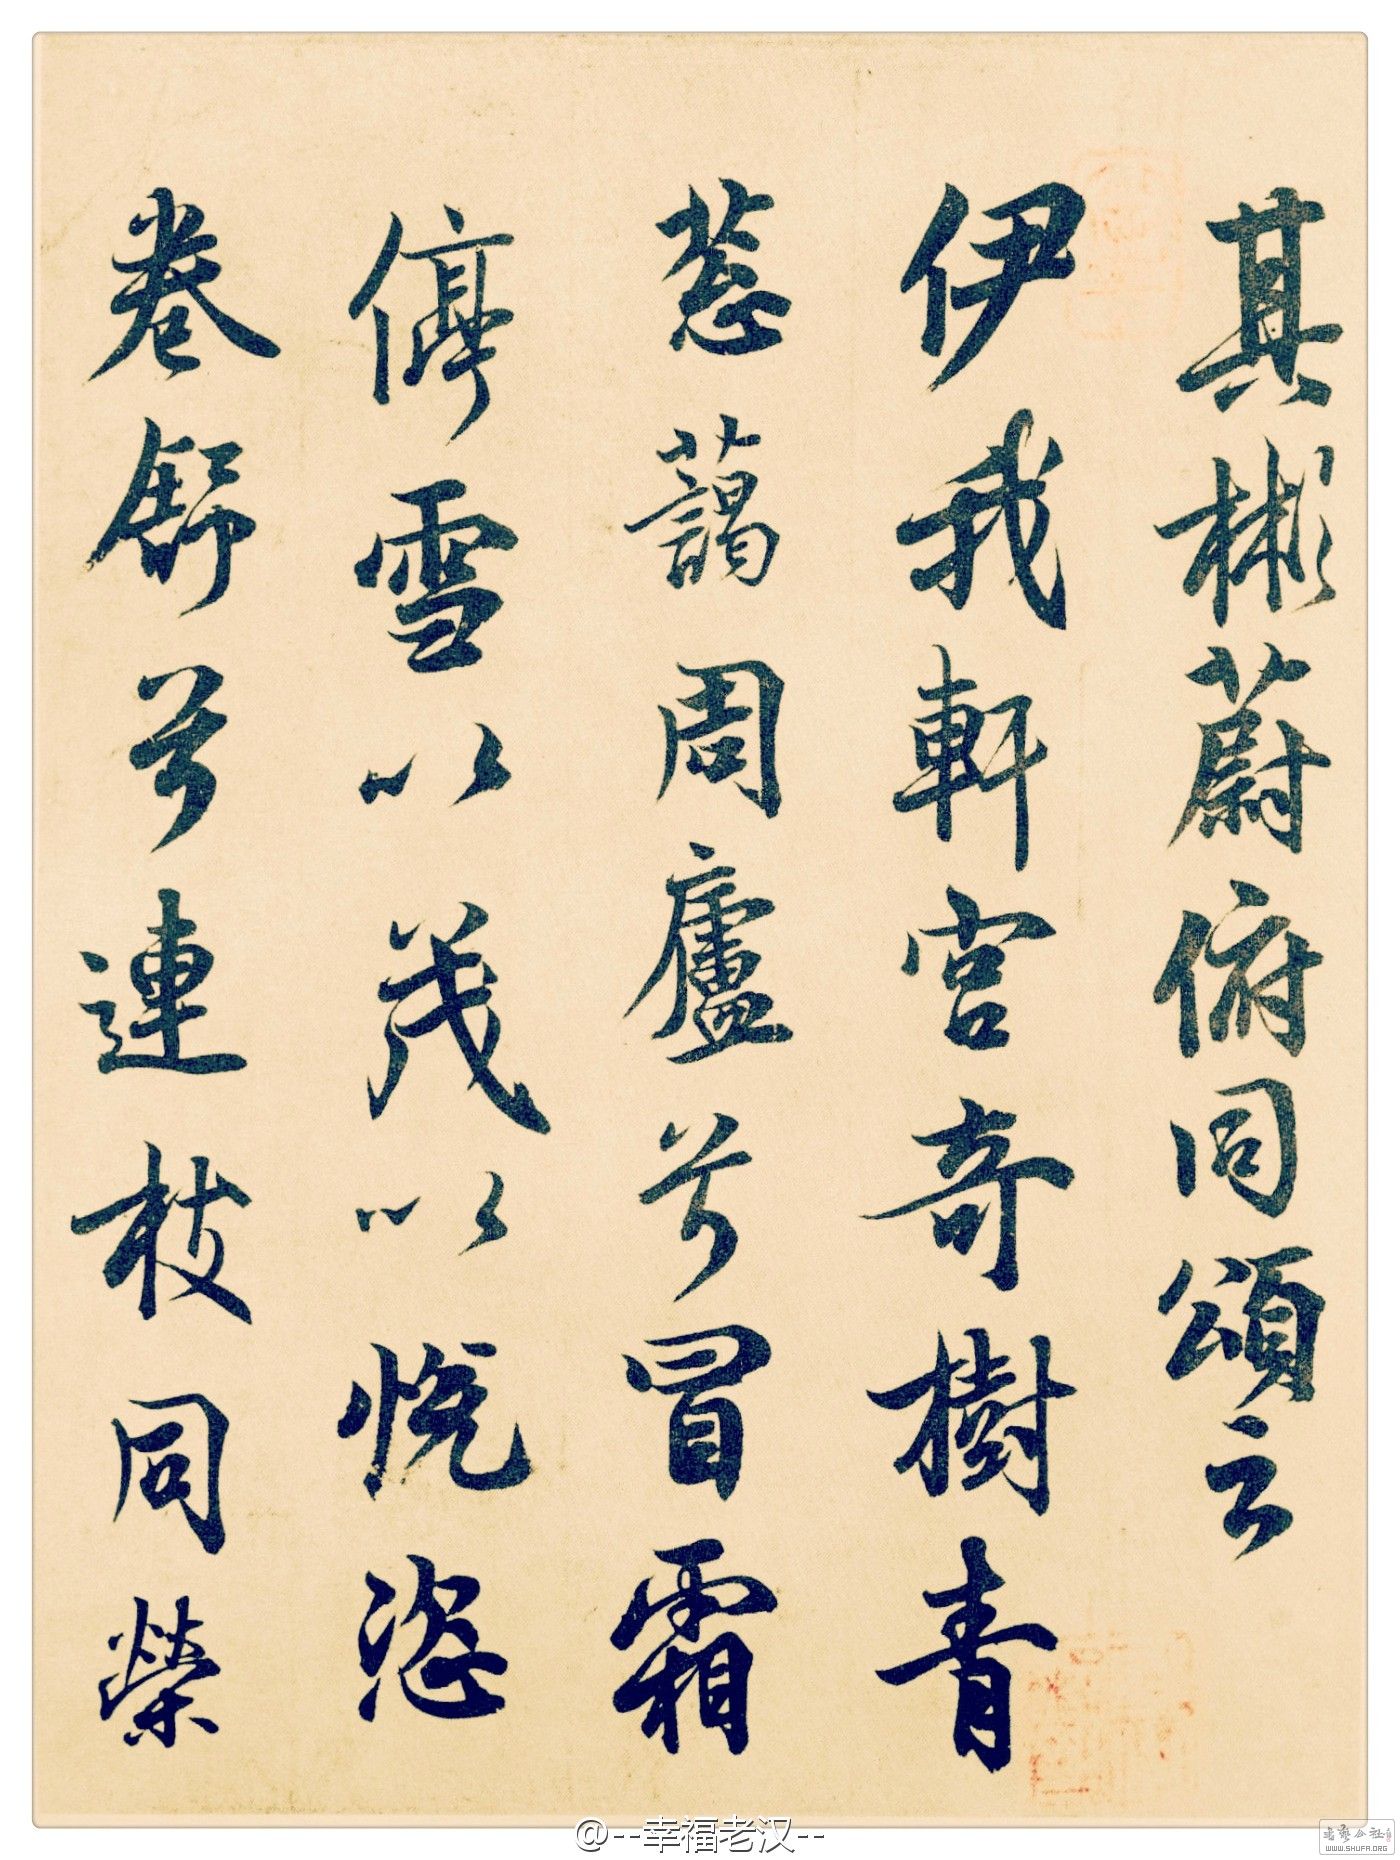 其彬蔚俯同頌云
伊我軒宮奇樹青
蔥藹周廬兮冒霜
停雪以茂以悅恣
卷舒兮連枝同榮
@--幸福老汉--
书艺公社
WWW.SHUFA.ORG